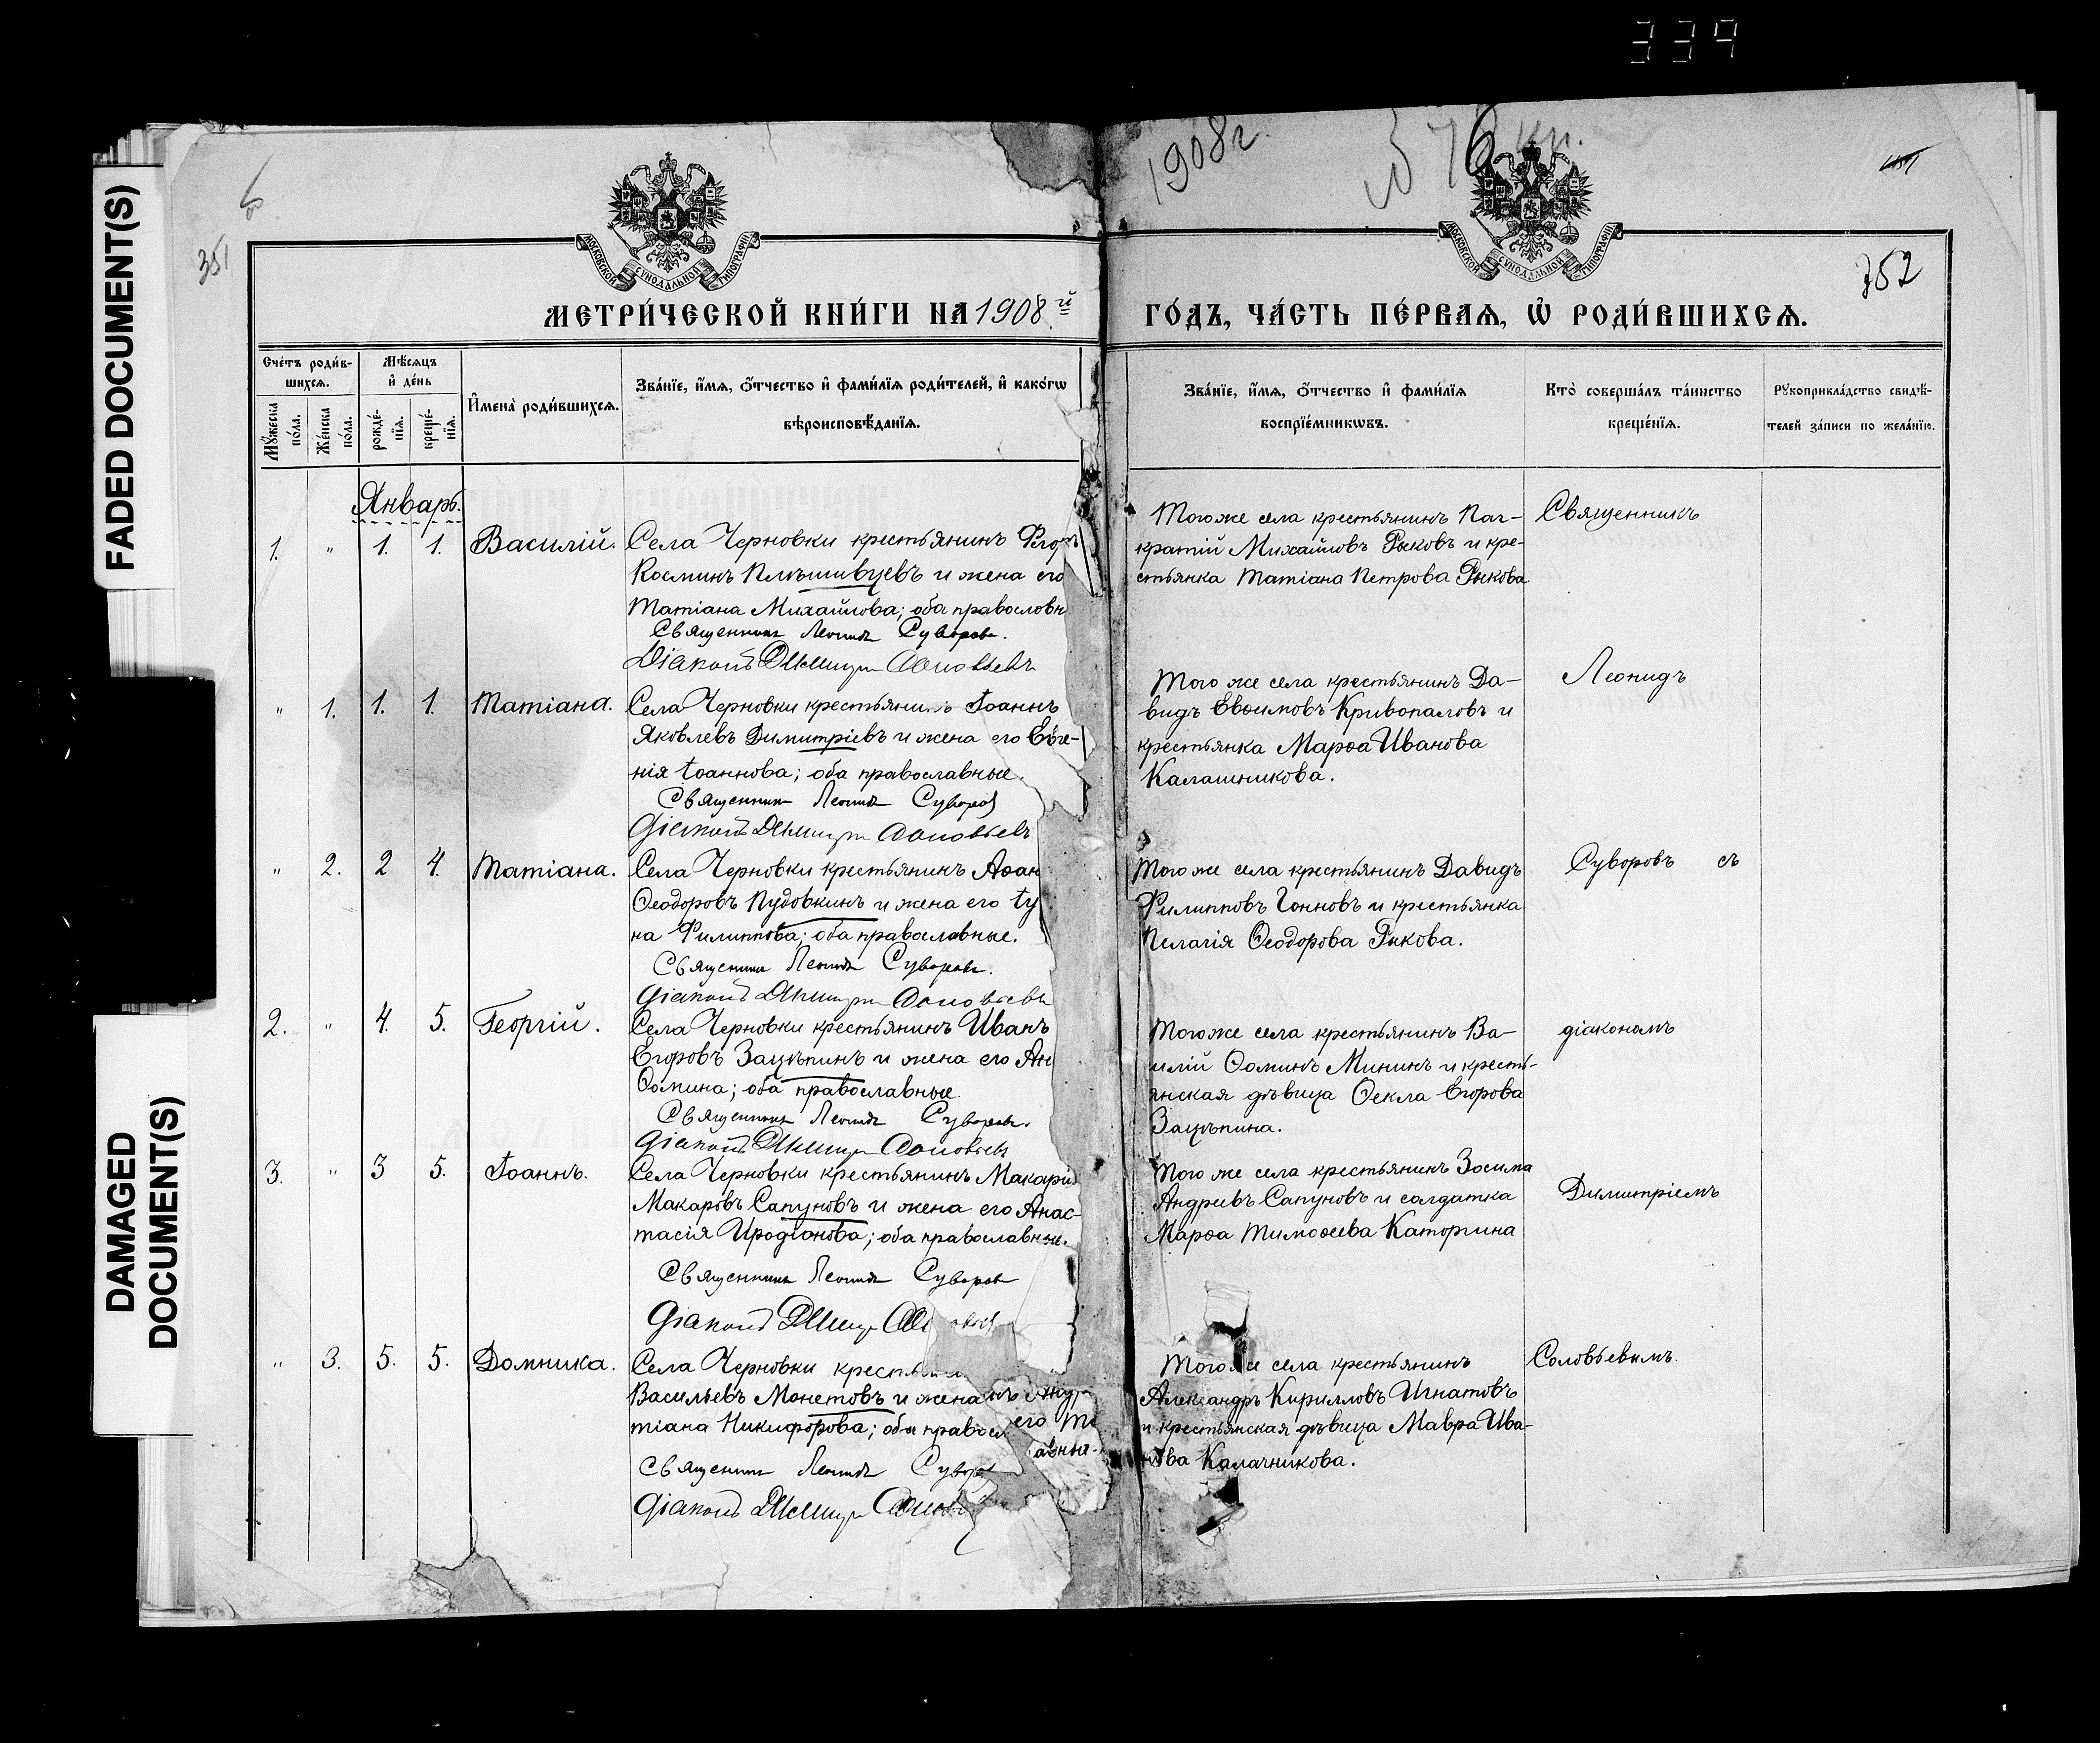 339
FADED DOCUMENT(S)
DAMAGED
DOCUMENT(S)
351
1908 г.
352
МОСКОВСКОЙ СУНОДАЛЬНОЙ ТИПОГРАФІИ
МОСКОВСКОЙ СУНОДАЛЬНОЙ ТИПОГРАФІИ
МЕТРИ́ЧЕСКОЙ КНИ́ГИ НА 1908й
ГО́ДЪ, ЧА́СТЬ ПЕ́РВАѦ, Ѡ҆ РОДИ́ВШИХСѦ.
Сче́тъ роди́в-
шихсѧ.
Мꙋ́жеска по́ла.
Же́нска по́ла.
Мѣ́сѧцъ
и҆ де́нь
рожде́-
нїѧ.
креще́-
нїѧ.
И҆мена̀ роди́вшихсѧ.
Зва́нїе, и҆́мѧ, ѻ҆́тчество и҆ фами́лїѧ роди́телей, и҆ како́гѡ
вѣроисповѣ́данїѧ.
Зва́нїе, и҆́мѧ, ѻ҆́тчество и҆ фами́лїѧ
воспрїе́мникѡвъ.
Кто̀ соверша́лъ та́инство
креще́нїѧ.
Рꙋкоприкла́дство свидѣ́-
телей за́писи по жела́нїю.
Январь.
1. " 1. 1. Василій.
Села Черновки крестьянинъ
Косминъ Плѣшивцевъ и жена его
Татіана Михайлова; оба православн
Священникъ Леонидъ Суворовъ.
Діаконъ Димитрій Соловьевъ
Того же села крестьянинъ Пан-
кратій Михайловъ Рыковъ и кре-
стьянка Татіана Петрова Рыкова
Священникъ
" 1. 1. 1. Татіана.
Села Черновки крестьянинъ Іоаннъ
Яковлевъ Димитріевъ и жена его Евге-
нія Іоаннова; оба православные.
Священникъ Леонидъ Суворов
Діаконъ Димитрій Соловьевъ
Того же села крестьянинъ Да-
видъ Евѳимовъ Кривопаловъ и
крестьянка Марѳа Иванова
Калашникова.
Леонидъ
" 2. 2 4. Татіана.
Села Черновки крестьянинъ Аѳан
Ѳеодоровъ Пудовкинъ и жена его Іу
на Филиппова; оба православные.
Священникъ Леонидъ Суворовъ.
Діаконъ Димитрій Соловьевъ
Того же села крестьянинъ Давидъ
Филипповъ Гонновъ и крестьянка
Пелагія Ѳеодорова Рыкова.
Суворовъ съ
2. " 4. 5. Георгій.
Села Черновки крестьянинъ Иванъ
Егоровъ Зацѣпинъ и жена его Ан
Ѳомина; оба православные.
Священникъ Леонидъ Суворовъ.
Діаконъ Димитрій Соловьевъ
Того же села крестьянинъ Ва-
илій Ѳоминъ Мининъ и кресть-
янская дѣвица Ѳекла Егорова
Зацѣпина.
діакономъ
3. " 3 5. Іоаннъ.
Села Черновки крестьянинъ Макарій
Макаровъ Сапуновъ и жена его Анас-
тасія Иродіонова; оба православные.
Священникъ Леонидъ Суворов
Діаконъ Димитрій
Того же села крестьянинъ Зосима
Андреевъ Сапуновъ и солдатка
Марѳа Тимоѳеева Каторгина
Димитріемъ
" 3. 5. 5. Домника.
Села Черновки крестьянинъ Андр
Васильевъ Монетовъ и жена его Та
тіана Никифорова; оба православныя.
Священникъ Леонидъ Суворов
Діаконъ Димитрій Соловь
Того же села крестьянинъ
Александръ Кирилловъ Игнатовъ
и крестьянская дѣвица Мавра Ива-
нова Калачникова.
Соловьевымъ.